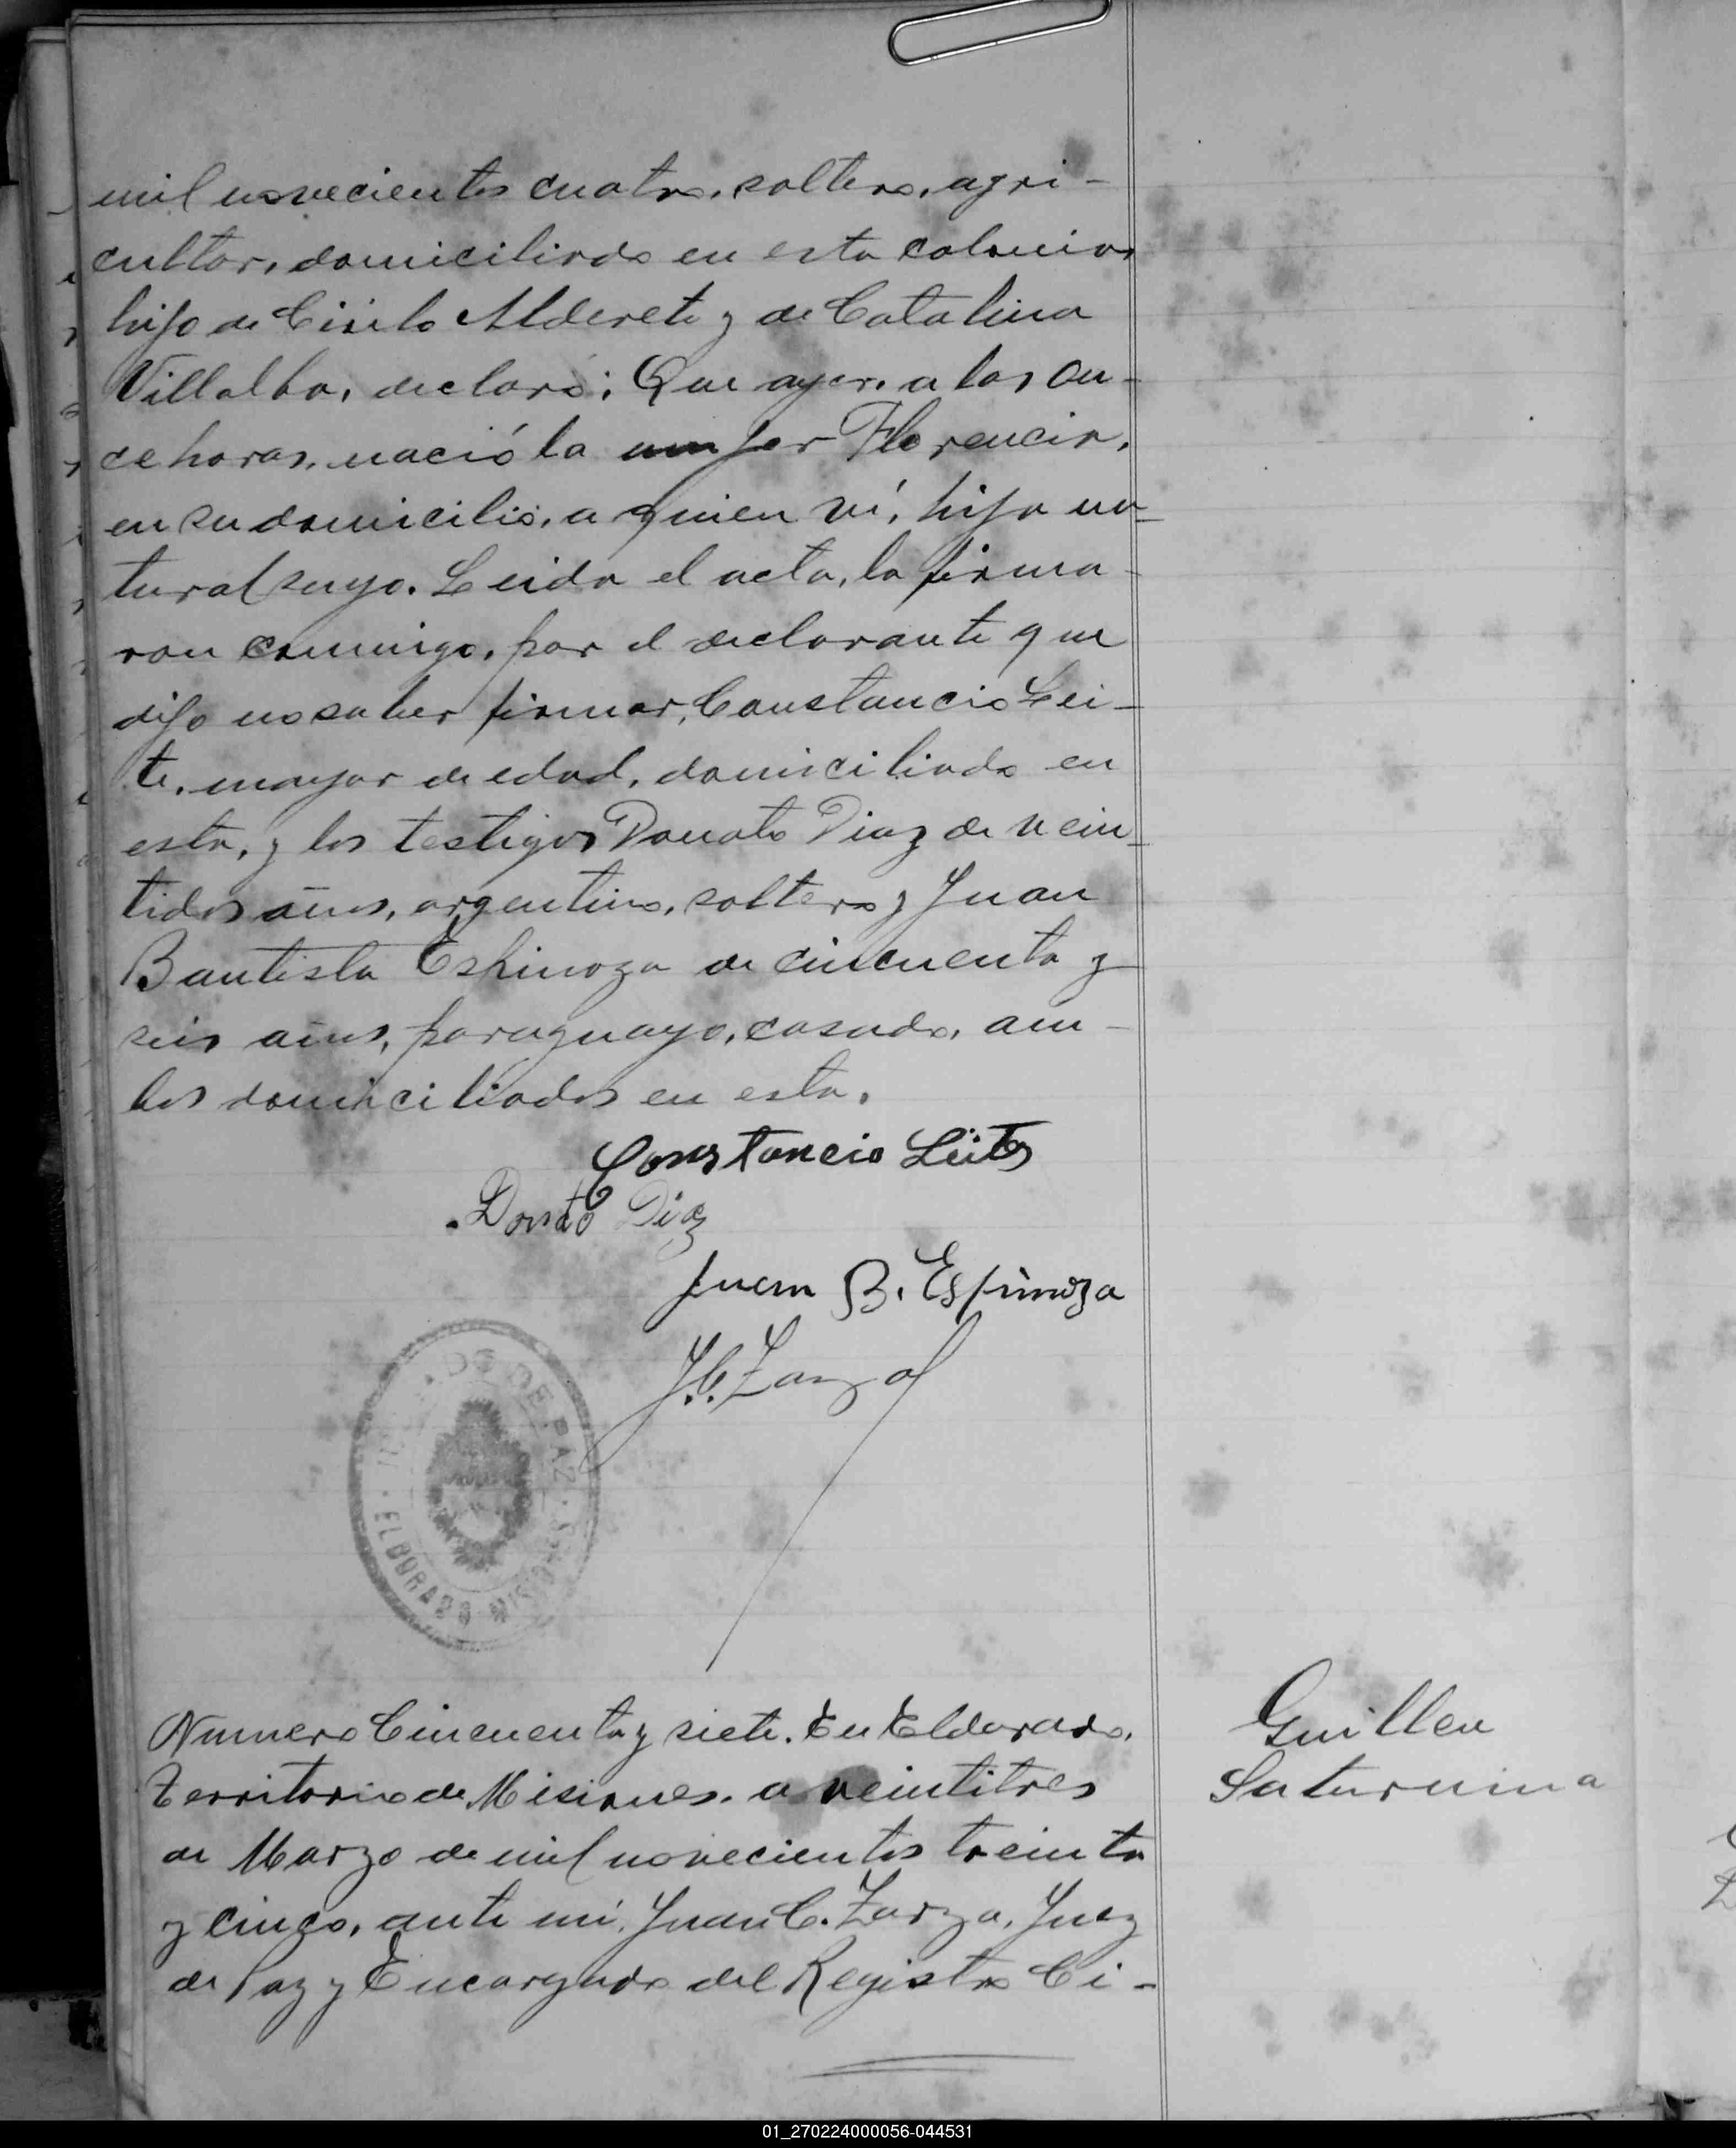 mil novecientos cuatro, soltero, agri-
cultor, domiciliado en esta colonia,
hijo de Cirilo Alderete y de Catalina
Villalba, declaró: Que ayer, a las on-
ce horas, nació la mujer Florencia,
en su domicilio, a quien vi, hija na-
tural suya. Leida el acta, la firma-
ron conmigo, por el declarante que
dijo no saber firmar, Constancio Lei-
te, mayor de edad, domiciliado en
esta, y los testigos Donato Diaz de vein-
tidos años, argentino, soltero y Juan
Bautista Espinoza de cincuenta y
seis años, paraguayo, casado, am-
bos domiciliados en esta.
Constancio Leites
Donato Diaz
Juan B. Espinoza
J.C. Zarza
DO DE PAZ · ELDORADO MISIONES
Numero Cincuenta y siete. En Eldorado,
Territorio de Misiones, a veintitres
de Marzo de mil novecientos treinta
y cinco, ante mí, Juan C. Zarza, Juez
de Paz y Encargado del Registro Ci-
Guillen
Saturnina
01_270224000056-044531